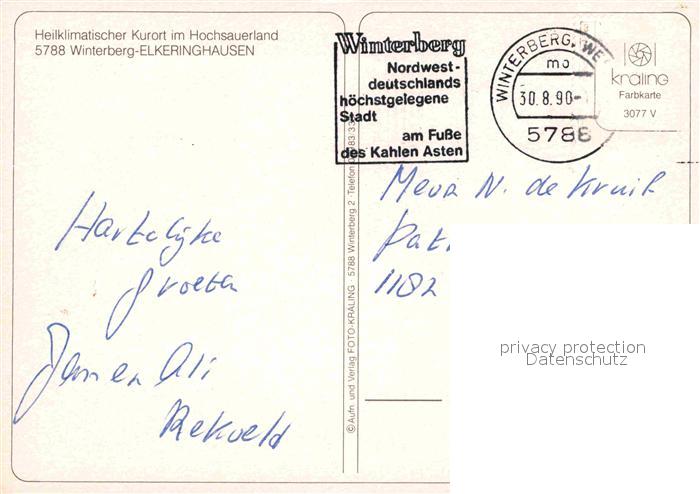 Heilklimatischer Kurort im Hochsauerland
5788 Winterberg-ELKERINGHAUSEN
Winterberg
Nordwest-
deutschlands
höchstgelegene
Stadt
am Fuße
des Kahlen Asten
WINTERBERG, WE
mo
30.8.90-
5788
kraling
Farbkarte
3077 V
© Aufn. und Verlag FOTO-KRALING · 5788 Winterberg 2 · Telefon
Hartelijke
groeten
Jan en Ali
Rekveld
Mevr N. de Kruik
Pat
1182
privacy protection
Datenschutz